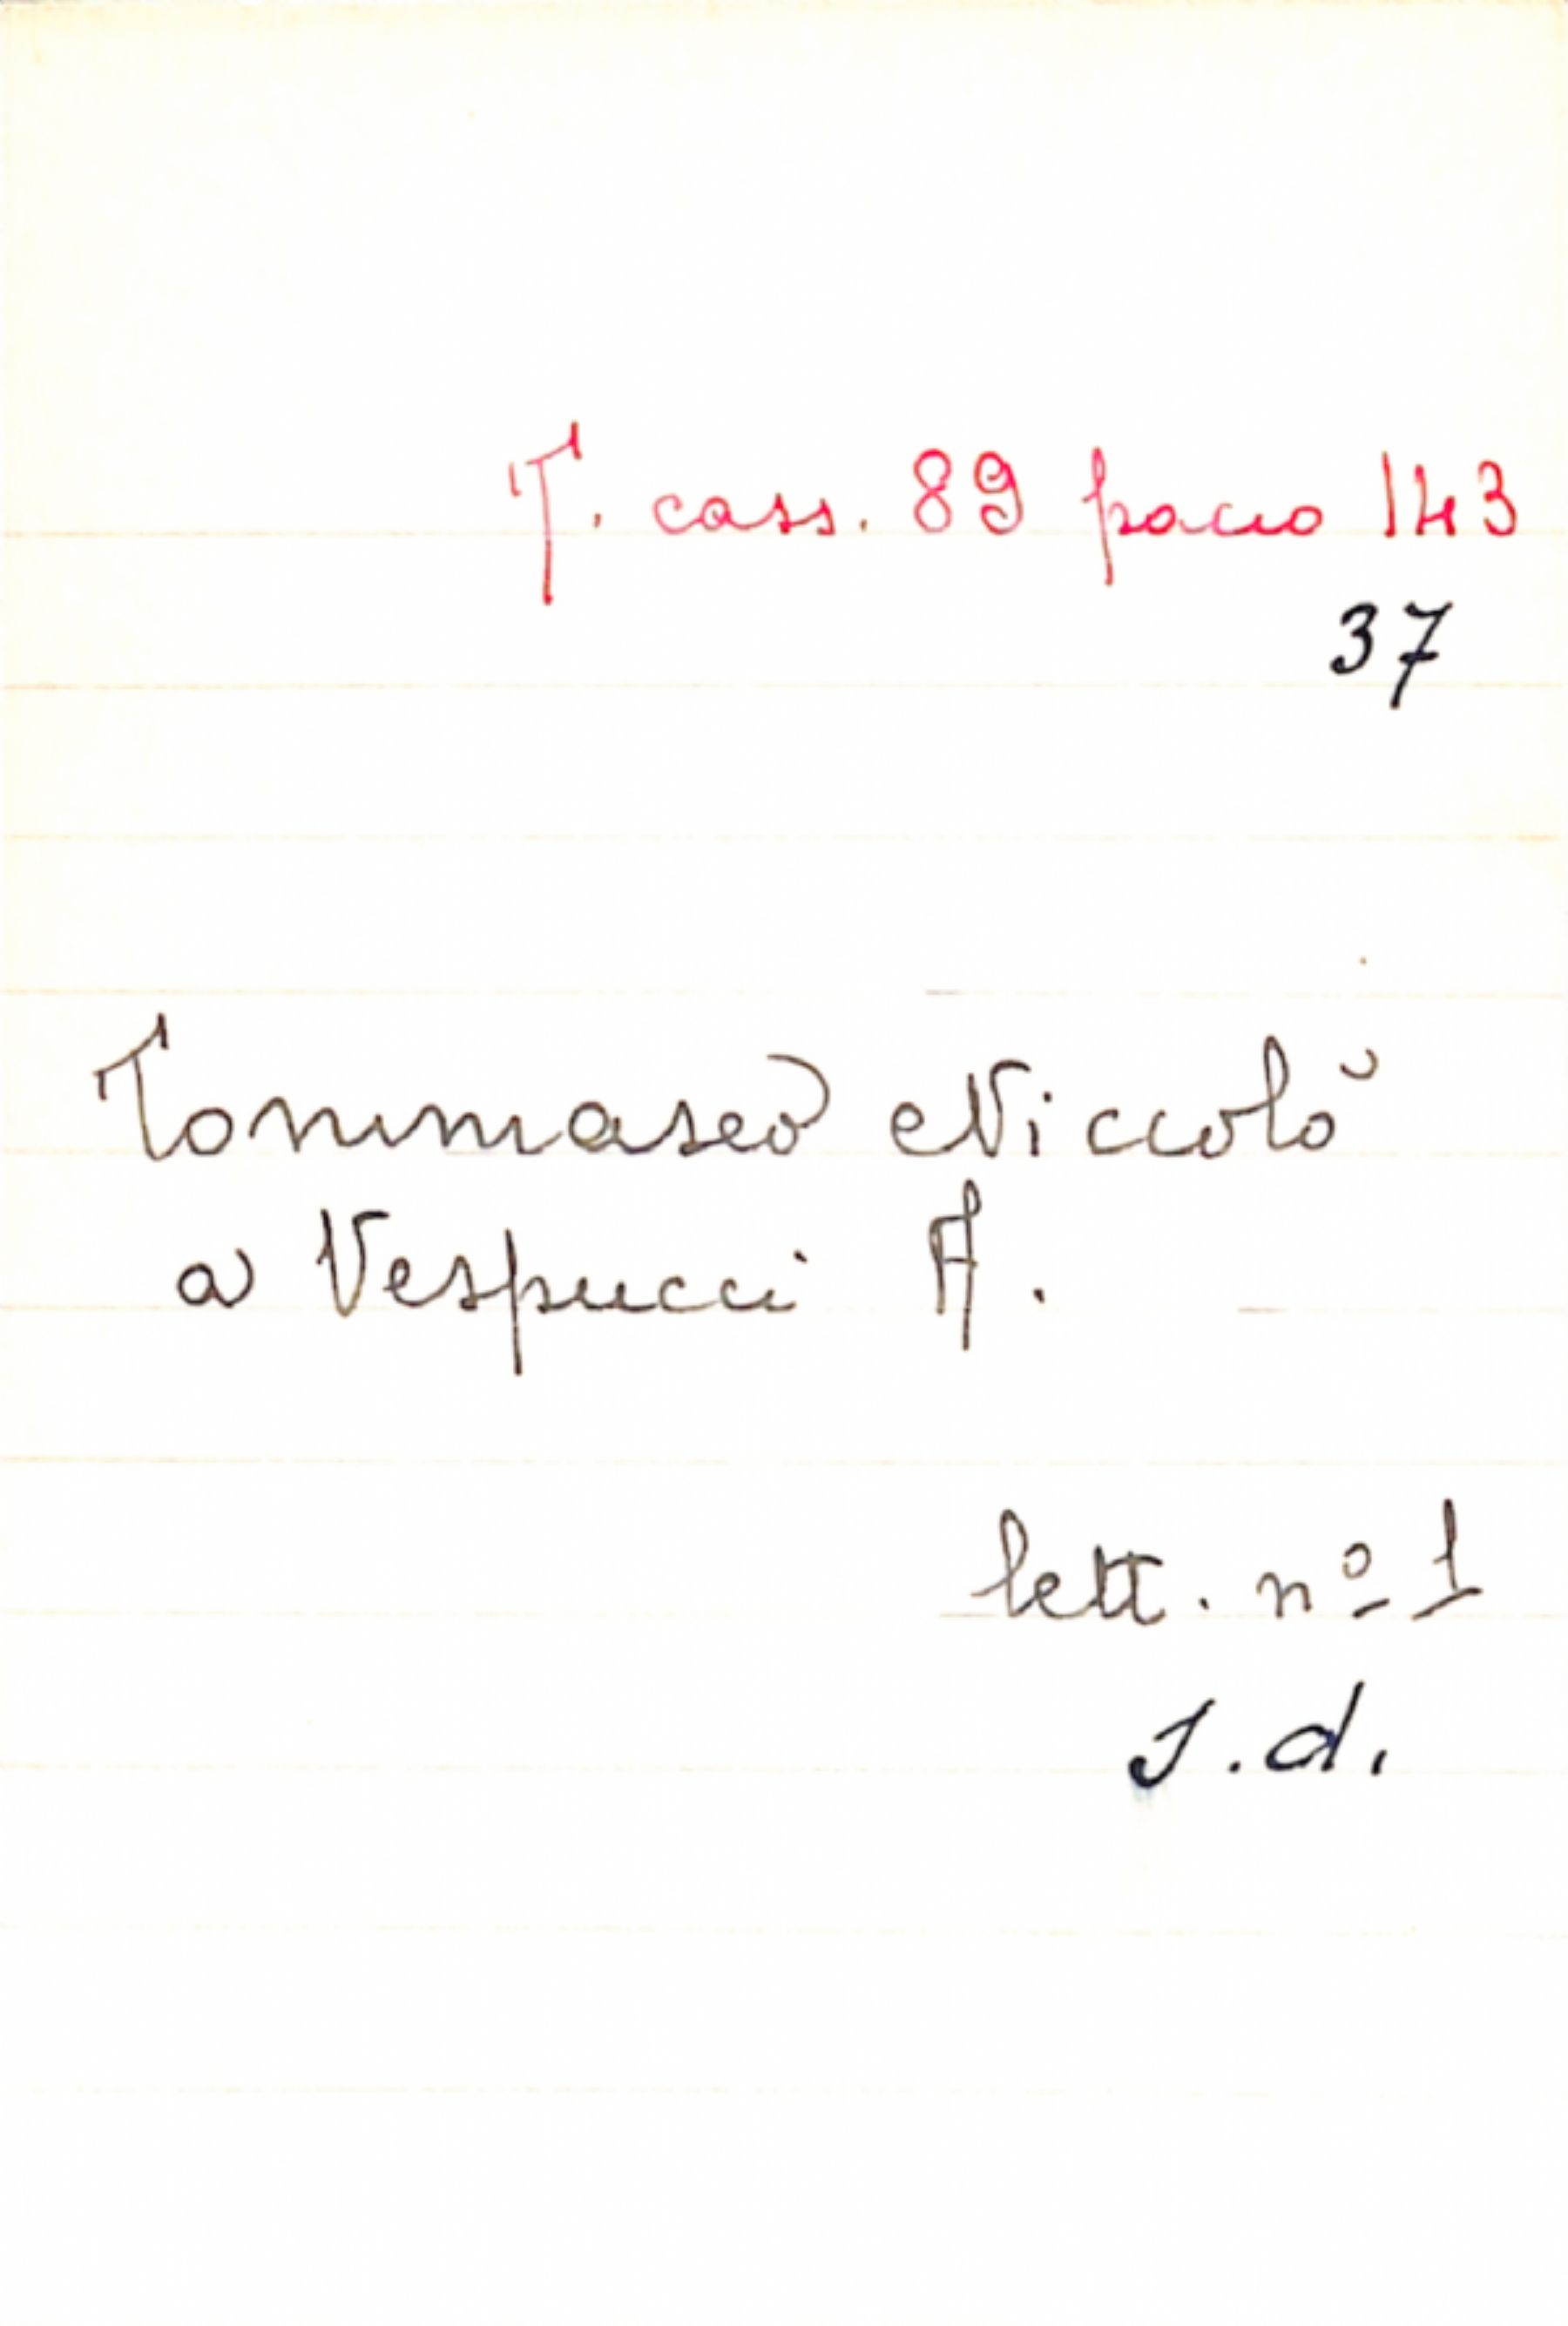 T. cass. 89 pacco 143
37
Tommaseo Niccolò
a Vespucci A.
lett. nº 1
s.d.